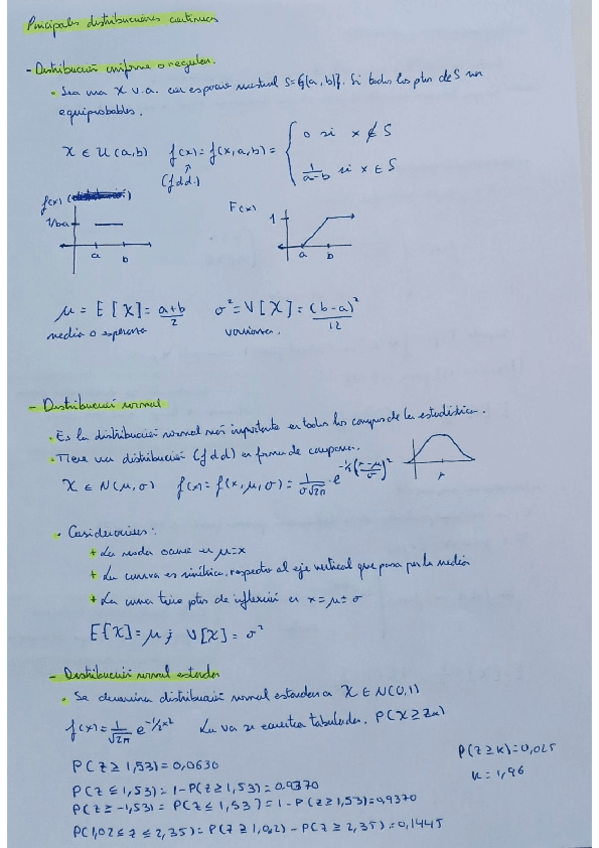 Principales distribuciones continuas
- Distribución uniforme o regular.
• Sea una X v.a. con espacio muestral S={(a,b)}. Si todos los ptos de S son
equiprobables.
X ∈ U(a,b) f(x)=f(x,a,b)= { 0 si x ∉ S
1/(a-b) si x ∈ S
(f.d.d.)
f(x)
1/b-a
a b
F(x)
1
a b
μ = E[X] = (a+b)/2 σ² = V[X] = (b-a)²/12
media o esperanza varianza.
- Distribución normal
• Es la distribución normal más importante en todos los campos de la estadística.
• Tiene una distribución (f.d.d) en forma de campana.
X ∈ N(μ,σ) f(x)=f(x,μ,σ) = 1/(σ√2π) · e^(-1/2((x-μ)/σ)²)
μ
• Consideraciones:
+ La moda ocurre en μ=x
+ La curva es simétrica, respecto al eje vertical que pasa por la media
+ La curva tiene ptos de inflexión en x=μ±σ
E[X]=μ; V[X]=σ²
- Distribución normal estandar
• Se denomina distribución normal estandar a X ∈ N(0,1)
f(x)=1/√2π e^(-1/2x²) La va se encuentra tabulada. P(X≥Zα)
P(Z ≥ 1,53)=0,0630
P(Z ≤ 1,53)=1-P(Z≥1,53)=0.9370
P(Z ≥ -1,53) = P(Z ≤ 1,53) = 1-P(Z≥1,53)=0,9370
P(1,02 ≤ Z ≤ 2,35)=P(Z ≥ 1,02) - P(Z ≥ 2,35)=0,1445
P(Z≥K)=0,025
K=1,96